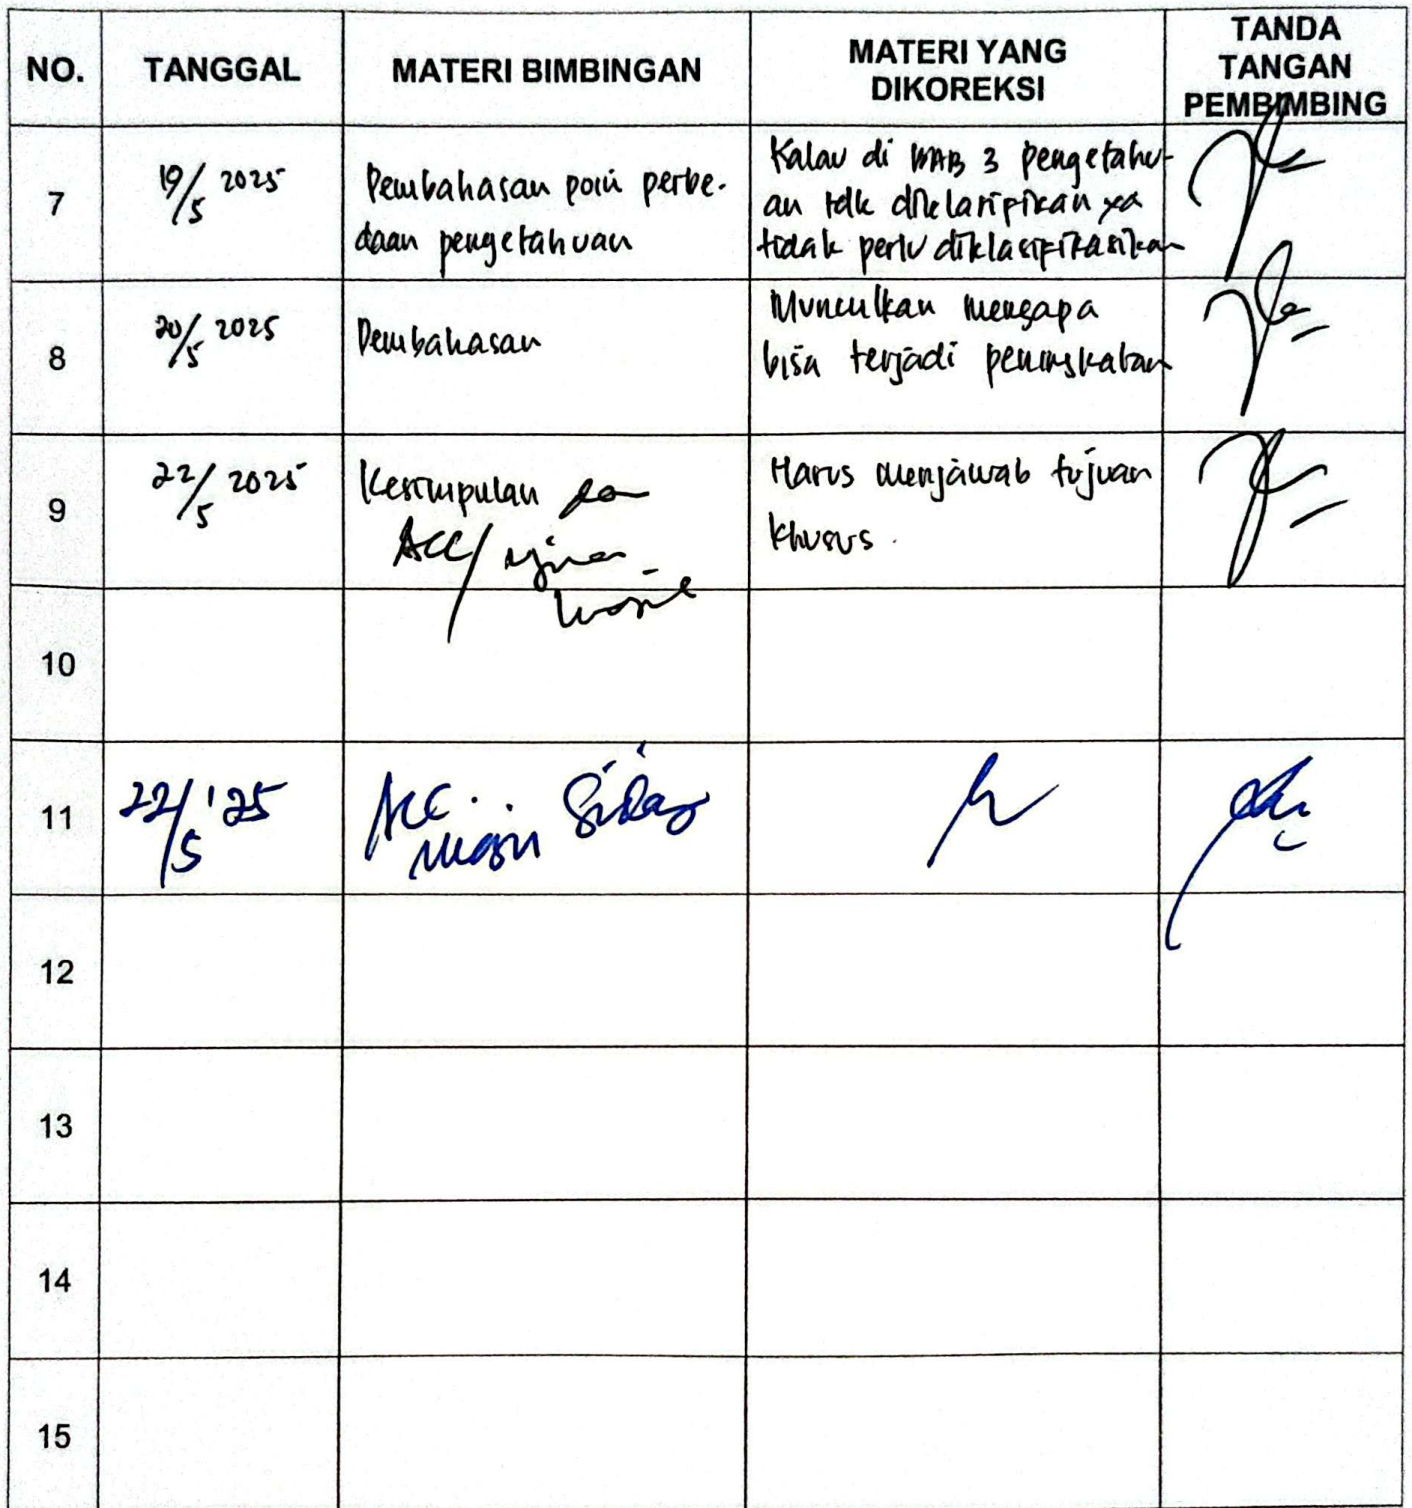 NO. TANGGAL MATERI BIMBINGAN MATERI YANG DIKOREKSI TANDA TANGAN PEMBIMBING
7 19/5 2025 Pembahasan poin perbe- Kalau di BAB 3 pengetahu-
daan pengetahuan an tdk diklasifikan ya
tidak perlu diklasifikasikan
8 20/5 2025 Pembahasan Munculkan mengapa
bisa terjadi peningkatan
9 22/5 2025 Kesimpulan Harus menjawab tujuan
ACC/ khusus.
10
11 22/5 '25 ACC Sidang
12
13
14
15